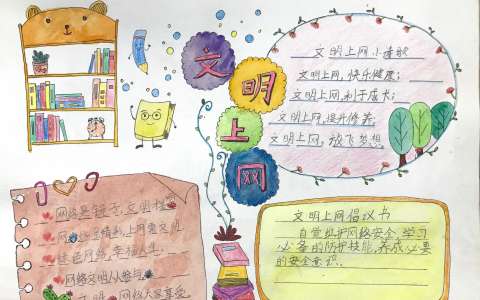 文明上网
文明上网小诗歌
文明上网,快乐健康;
文明上网,利于成长;
文明上网,提升修养;
文明上网,放飞梦想.
网络是镜子,文明
网 上需文明
网络,幸福人生.
网络文明人人参与
文明 网络大家享受
文明上网倡议书
自觉维护网络安全,学习
必备的防护技能,养成必要
的安全意识.